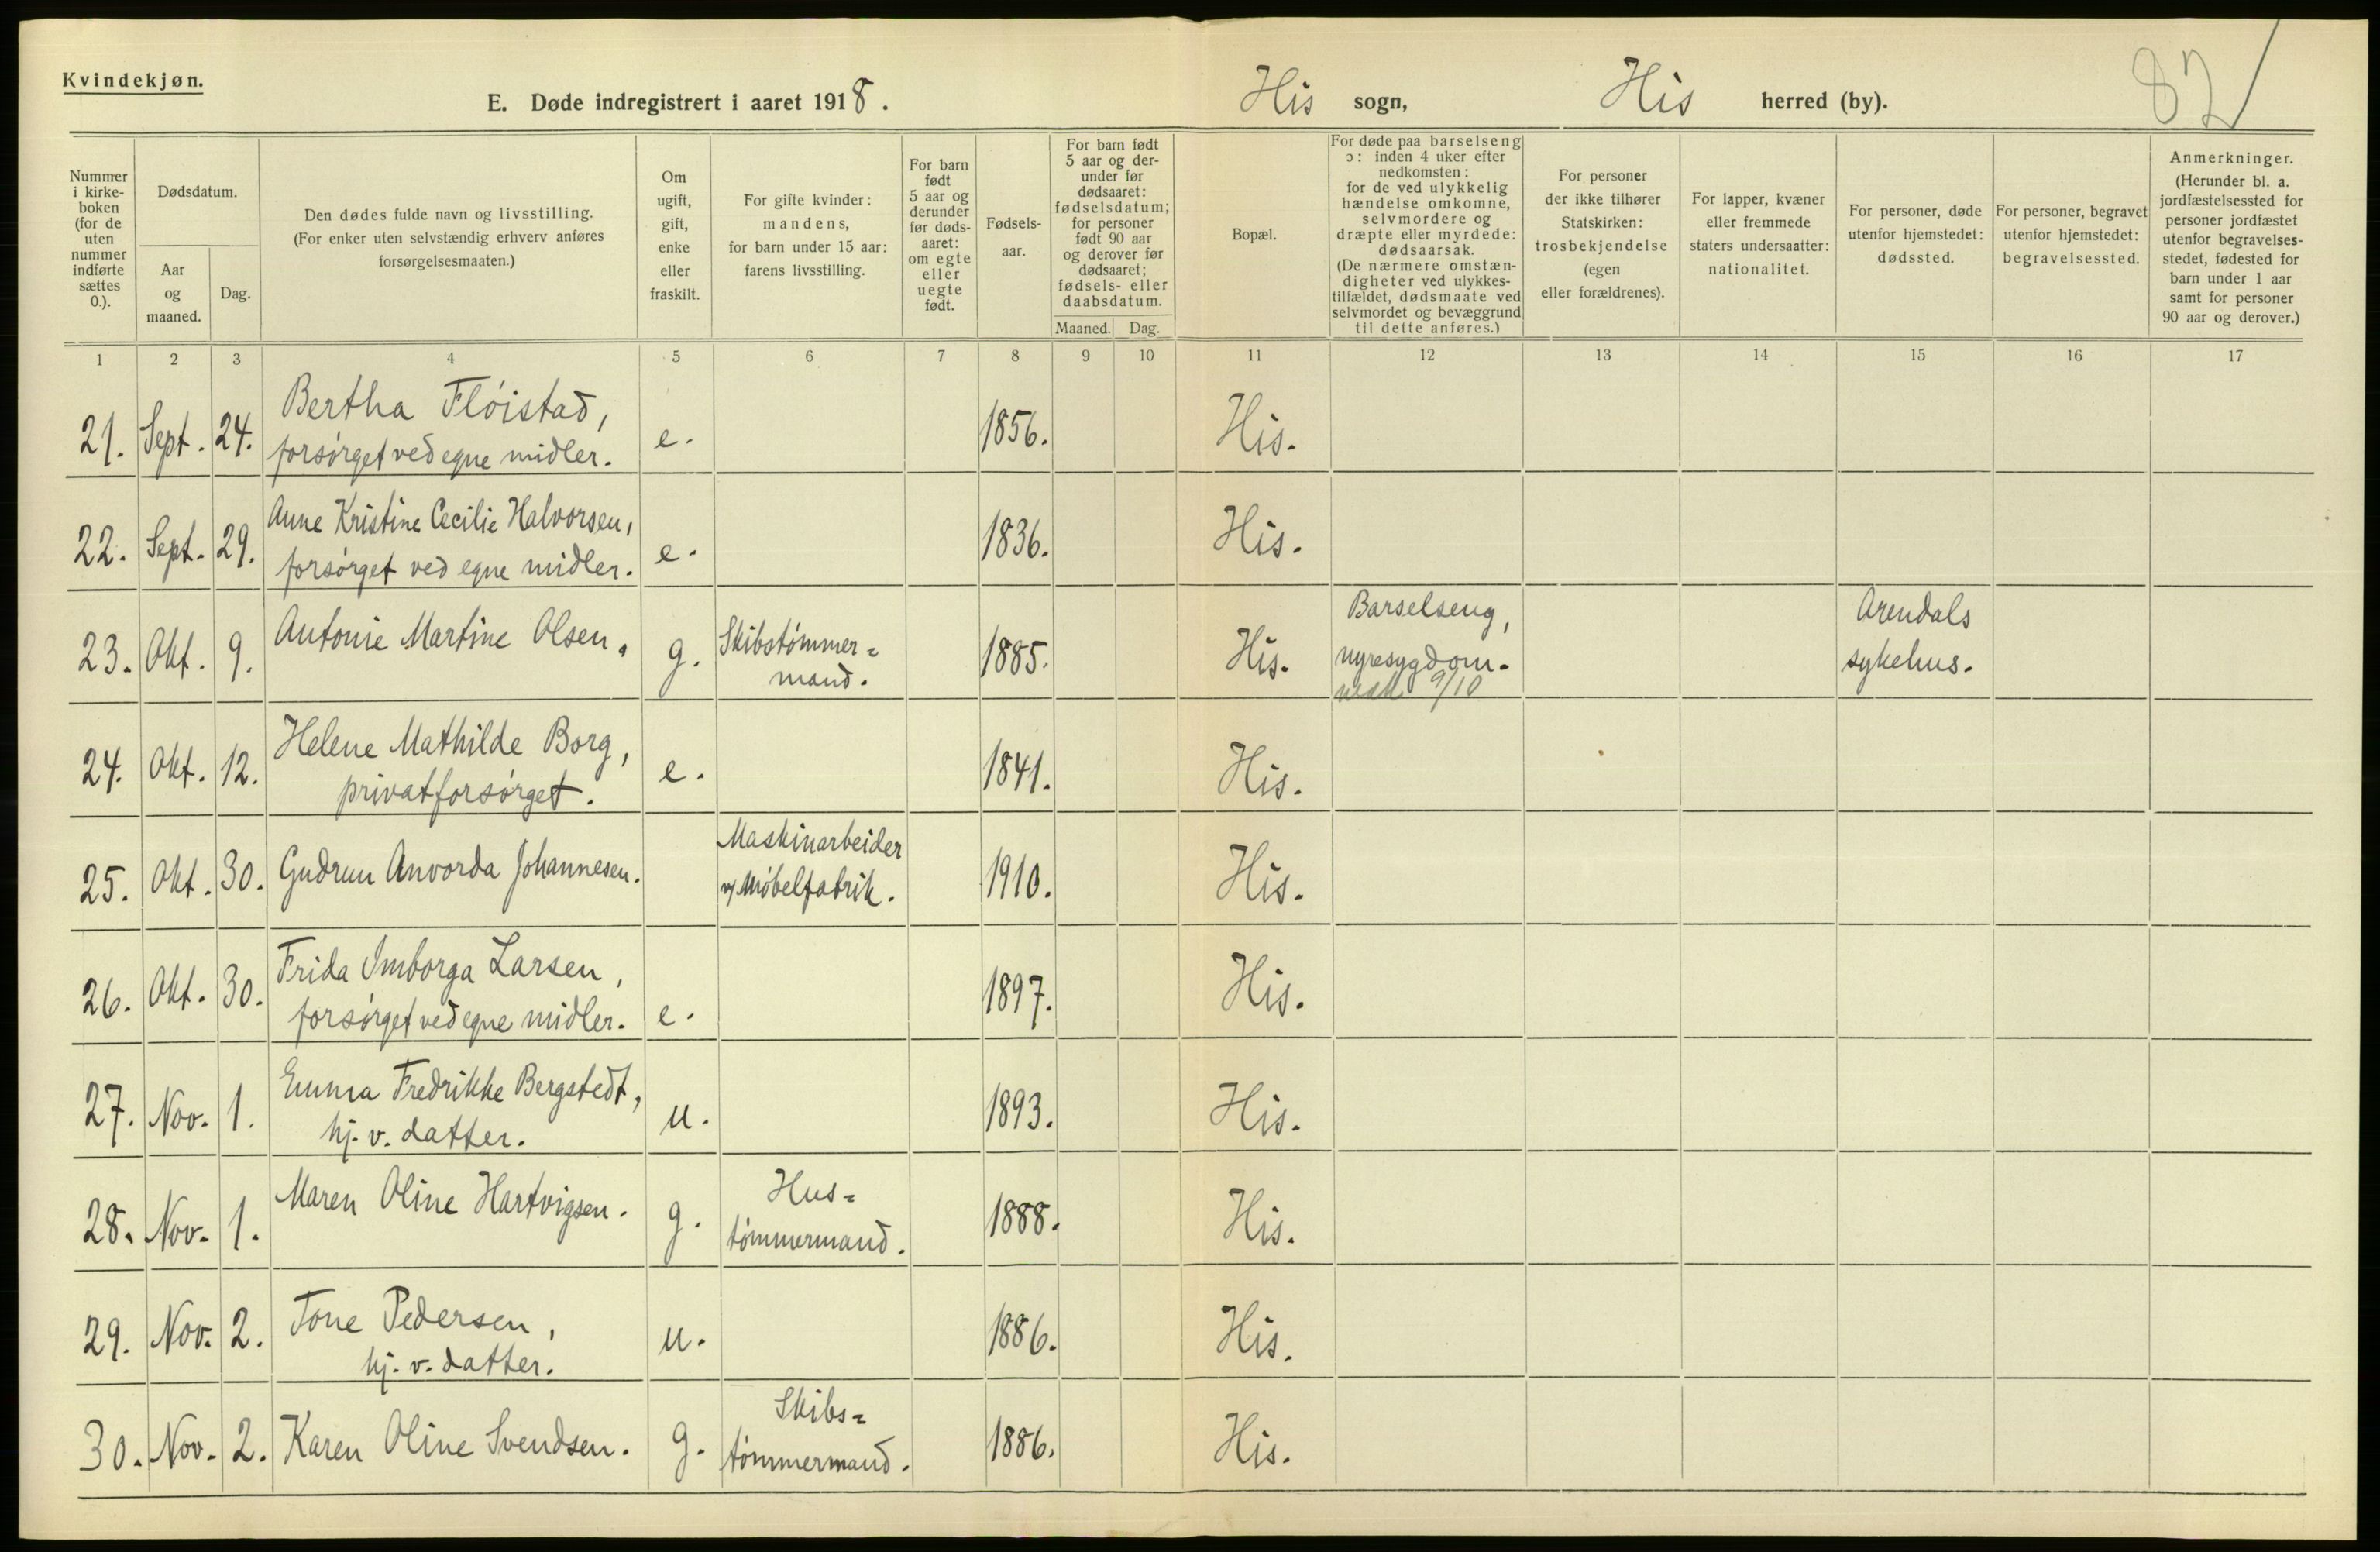 Kvindekjøn.
E. Døde indregistrert i aaret 1918.
His sogn, His herred (by).
82
Nummer i kirkeboken (for de uten nummer indførte sættes 0.).
Dødsdatum.
Aar og maaned.
Dag.
Den dødes fulde navn og livsstilling.
(For enker uten selvstændig erhverv anføres forsørgelsesmaaten.)
Om ugift, gift, enke eller fraskilt.
For gifte kvinder: mandens, for barn under 15 aar: farens livsstilling.
For barn født 5 aar og derunder før dødsaaret: om egte eller uegte født.
Fødselsaar.
For barn født 5 aar og derunder før dødsaaret: fødselsdatum; for personer født 90 aar og derover før dødsaaret; fødsels- eller daabsdatum.
Maaned. Dag.
Bopæl.
For døde paa barselseng ɔ: inden 4 uker efter nedkomsten: for de ved ulykkelig hændelse omkomne, selvmordere og dræpte eller myrdede: dødsaarsak.
(De nærmere omstændigheter ved ulykkestilfældet, dødsmaate ved selvmordet og bevæggrund til dette anføres.)
For personer der ikke tilhører Statskirken: trosbekjendelse (egen eller forældrenes).
For lapper, kvæner eller fremmede staters undersaatter: nationalitet.
For personer, døde utenfor hjemstedet: dødssted.
For personer, begravet utenfor hjemstedet: begravelsessted.
Anmerkninger.
(Herunder bl. a. jordfæstelsessted for personer jordfæstet utenfor begravelsesstedet, fødested for barn under 1 aar samt for personer 90 aar og derover.)
1 2 3 4 5 6 7 8 9 10 11 12 13 14 15 16 17
21. Sept. 24. Bertha Fløistad, forsørget ved egne midler. e. 1856. His.
22. Sept. 29. Anne Kristine Cecilie Halvorsen, forsørget ved egne midler. e. 1836. His.
23. Okt. 9. Antonie Martine Olsen. g. Skibstømmer= mand. 1885. His. Barselseng, nyresygdom. 9/10 Arendals sykehus.
24. Okt. 12. Helene Mathilde Borg, privatforsørget. e. 1841. His.
25. Okt. 30. Gudrun Anvorda Johannesen. Maskinarbeider v/ Møbelfabrik. 1910. His.
26. Okt. 30. Frida Imborga Larsen, forsørget ved egne midler. e. 1897. His.
27. Nov. 1. Emma Fredrikke Bergstedt, hj. v. datter. u. 1893. His.
28. Nov. 1. Maren Oline Hartvigsen. g. Hus= tømmermand. 1888. His.
29. Nov. 2. Tone Pedersen, hj. v. datter. u. 1886. His.
30. Nov. 2. Karen Oline Svendsen. g. Skibs= tømmermand. 1886. His.